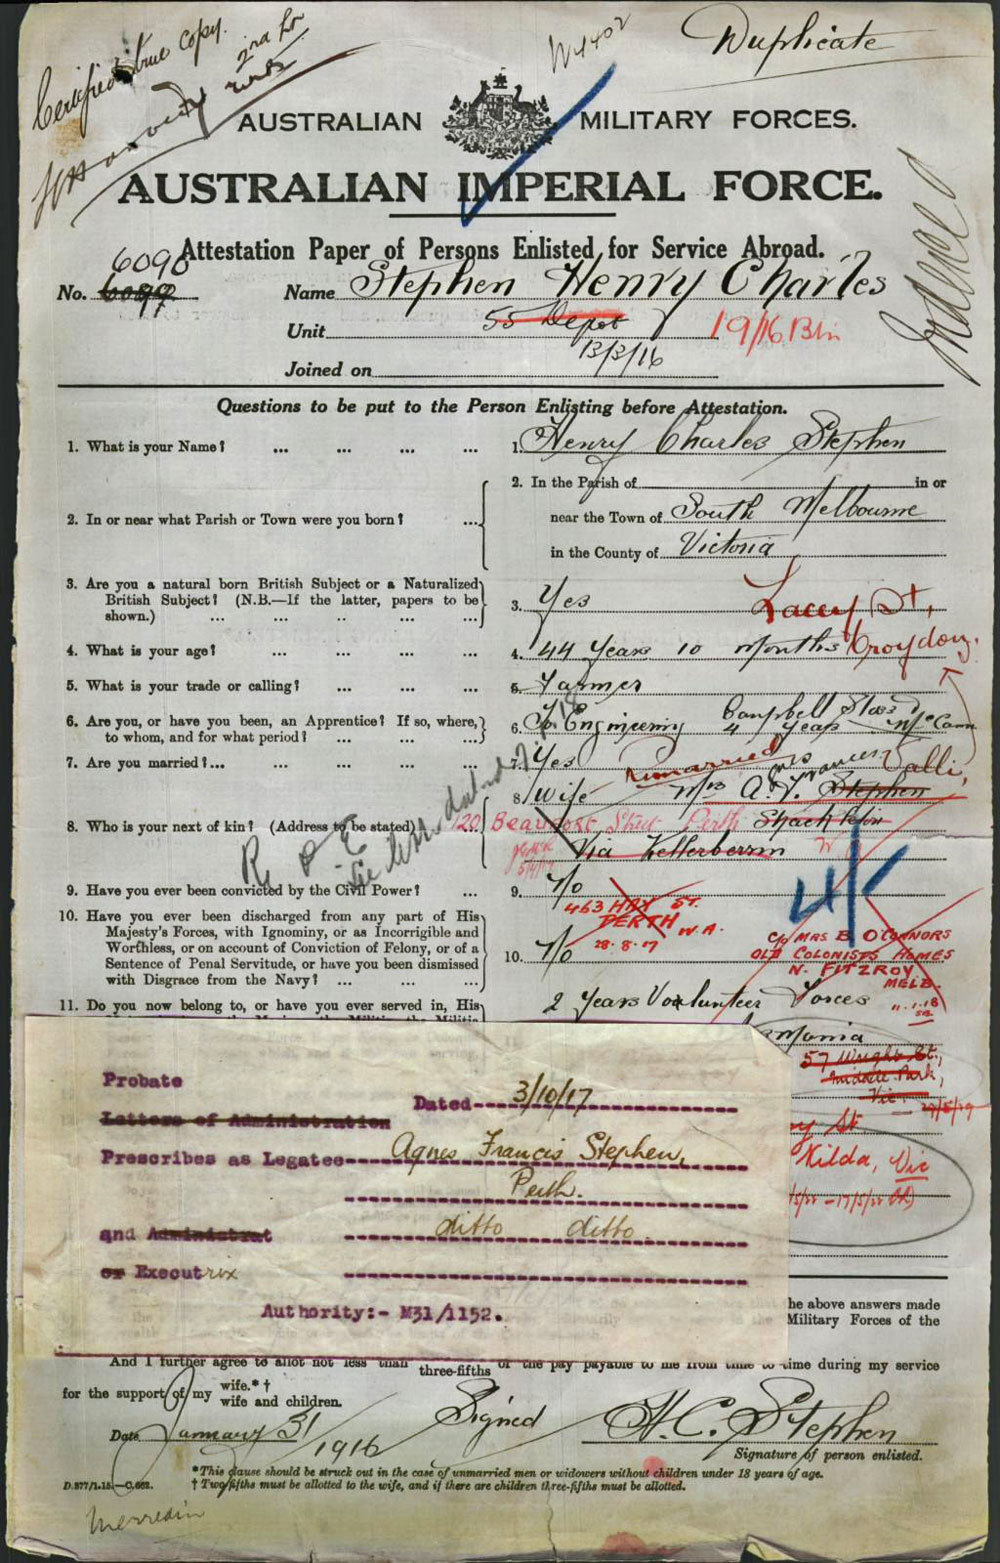 Certified true copy.
W4402
Duplicate
AUSTRALIAN MILITARY FORCES.
AUSTRALIAN IMPERIAL FORCE.
Indexed
Attestation Paper of Persons Enlisted for Service Abroad.
6090
No. Name Stephen Henry Charles
Unit 55 Depot 19/16 Bn
Joined on 13/3/16
Questions to be put to the Person Enlisting before Attestation.
1. What is your Name? ... ... ... ... 1. Henry Charles Stephen
2. In or near what Parish or Town were you born? ... 2. In the Parish of in or
near the Town of South Melbourne
in the County of Victoria
3. Are you a natural born British Subject or a Naturalized
British Subject? (N.B.—If the latter, papers to be
shown.) ... ... ... ... 3. Yes
Lacey St,
Croydon.
4. What is your age? ... ... ... ... 4. 44 Years 10 Months
5. What is your trade or calling? ... ... ... 5. Farmer
6. Are you, or have you been, an Apprentice? If so, where,
to whom, and for what period? ... ... ... 6. To Engineering Campbell Sloss & McCann
4 Years
7. Are you married? ... ... ... ... 7. Yes
remarried Mrs Frances Valli,
8. Who is your next of kin? (Address to be stated) 8. Wife Mrs A. F. Stephen
120 Beaufort Street Perth
Via Kellerberrin
9. Have you ever been convicted by the Civil Power? ... 9. No
463 HAY ST.
PERTH W.A.
28.8.17
10. Have you ever been discharged from any part of His
Majesty's Forces, with Ignominy, or as Incorrigible and
Worthless, or on account of Conviction of Felony, or of a
Sentence of Penal Servitude, or have you been dismissed
with Disgrace from the Navy? ... ... ... 10. No
C/o MRS B O'CONNORS
OLD COLONISTS HOMES
N. FITZROY
MELB.
11.1.18
11. Do you now belong to, or have you ever served in, His
2 Years Volunteer Forces
57 Wright St.,
Middle Park,
Vic.
Kilda, Vic
Probate
Letters of Administration Dated 3/10/17
Prescribes as Legatee Agnes Francis Stephen,
Perth.
and Administrat ditto ditto
or Executrix
Authority:- M31/1152.
he above answers made
Military Forces of the
And I further agree to allot not less than three-fifths of the pay payable to me from time to time during my service
for the support of my wife.* †
wife and children.
Date January 31 1916
Signed H. C. Stephen
Signature of person enlisted.
*This clause should be struck out in the case of unmarried men or widowers without children under 18 years of age.
† Two-fifths must be allotted to the wife, and if there are children three-fifths must be allotted.
Merredin